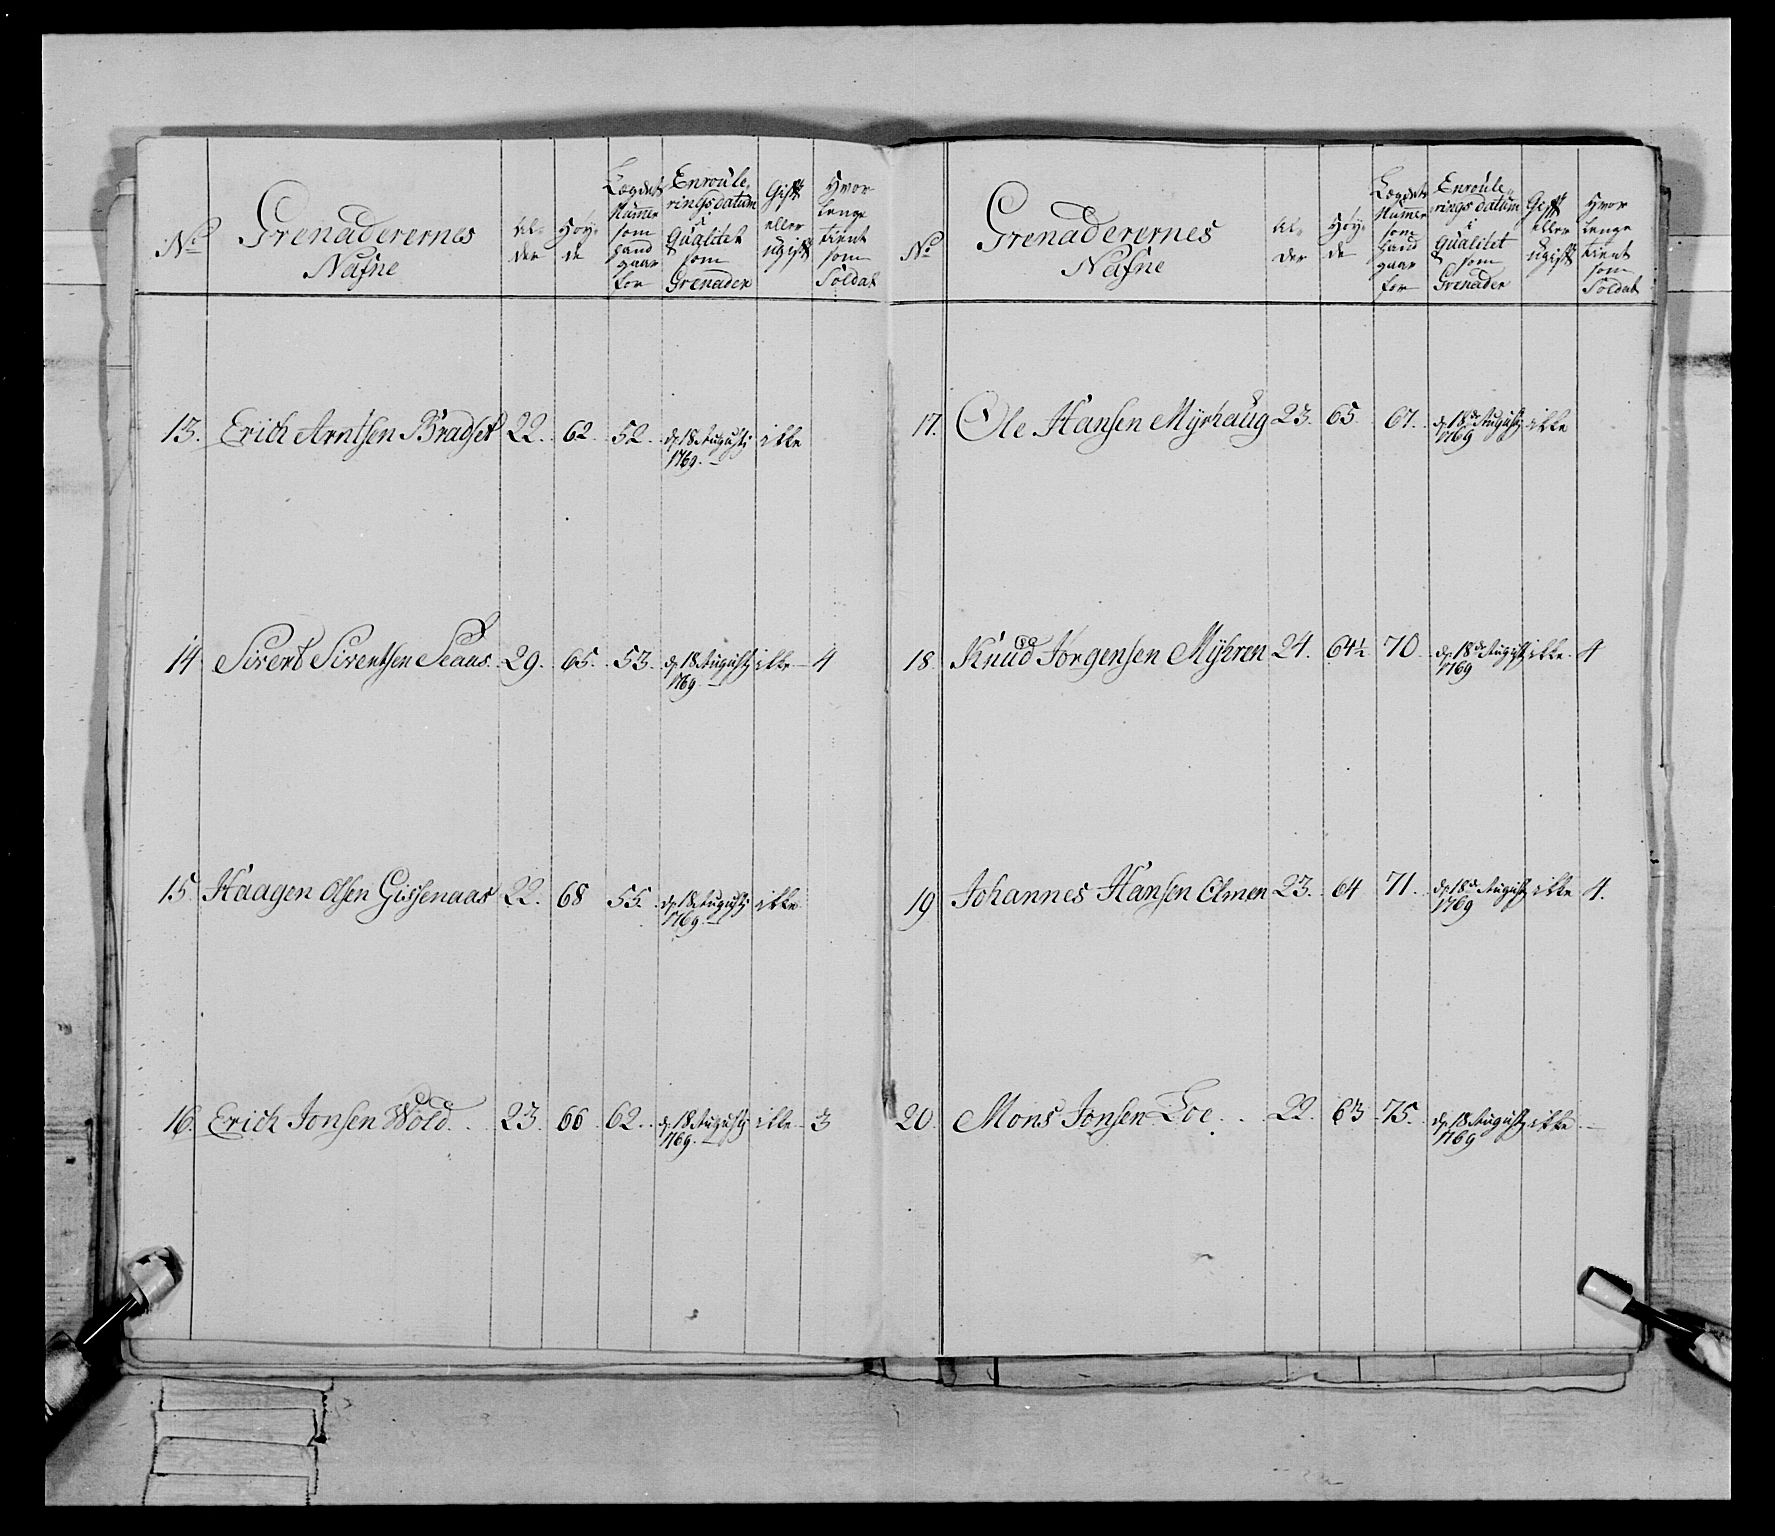 No Grenaderernes Nafne Al- der Høy- de Lægdets Numer som hand gaar for Enroule- ringsdatum i Qualitet som Grenader Gift eller ugift Hvor lenge tient som Soldat
13. Erich Arntsen Bradset 22. 62. 52. d. 18 Augustj ikke
1769.
14 Sivert Siventsen 29. 65. 53. d. 18 Augustj ikke 4
1769.
15 Haagen Olsen Gissenaas 22. 68 55. d. 18 Augustj ikke
1769.
16. Erich Jonsen Wold. 23. 66 62. d. 18 Augustj ikke 3
1769.
No Grenaderernes Nafne Al- der Høy- de Lægdets Numer som hand gaar for Enroule- ringsdatum i Qualitet som Grenader Gift eller ugift Hvor lenge tient som Soldat
17. Ole Hansen Myrhaug 23. 65 67. d. 18de Augustj ikke
1769
18. Knud Jørgensen Myhren 24. 64½ 70. d. 18de Augustj ikke. 4
1769
19 Johannes Hansen Olmen 23. 64 71. d. 18de Augustj ikke 4.
1769
20. Mons Jonsen Loe. 22. 63 75. d. 18 Augustj ikke
1769